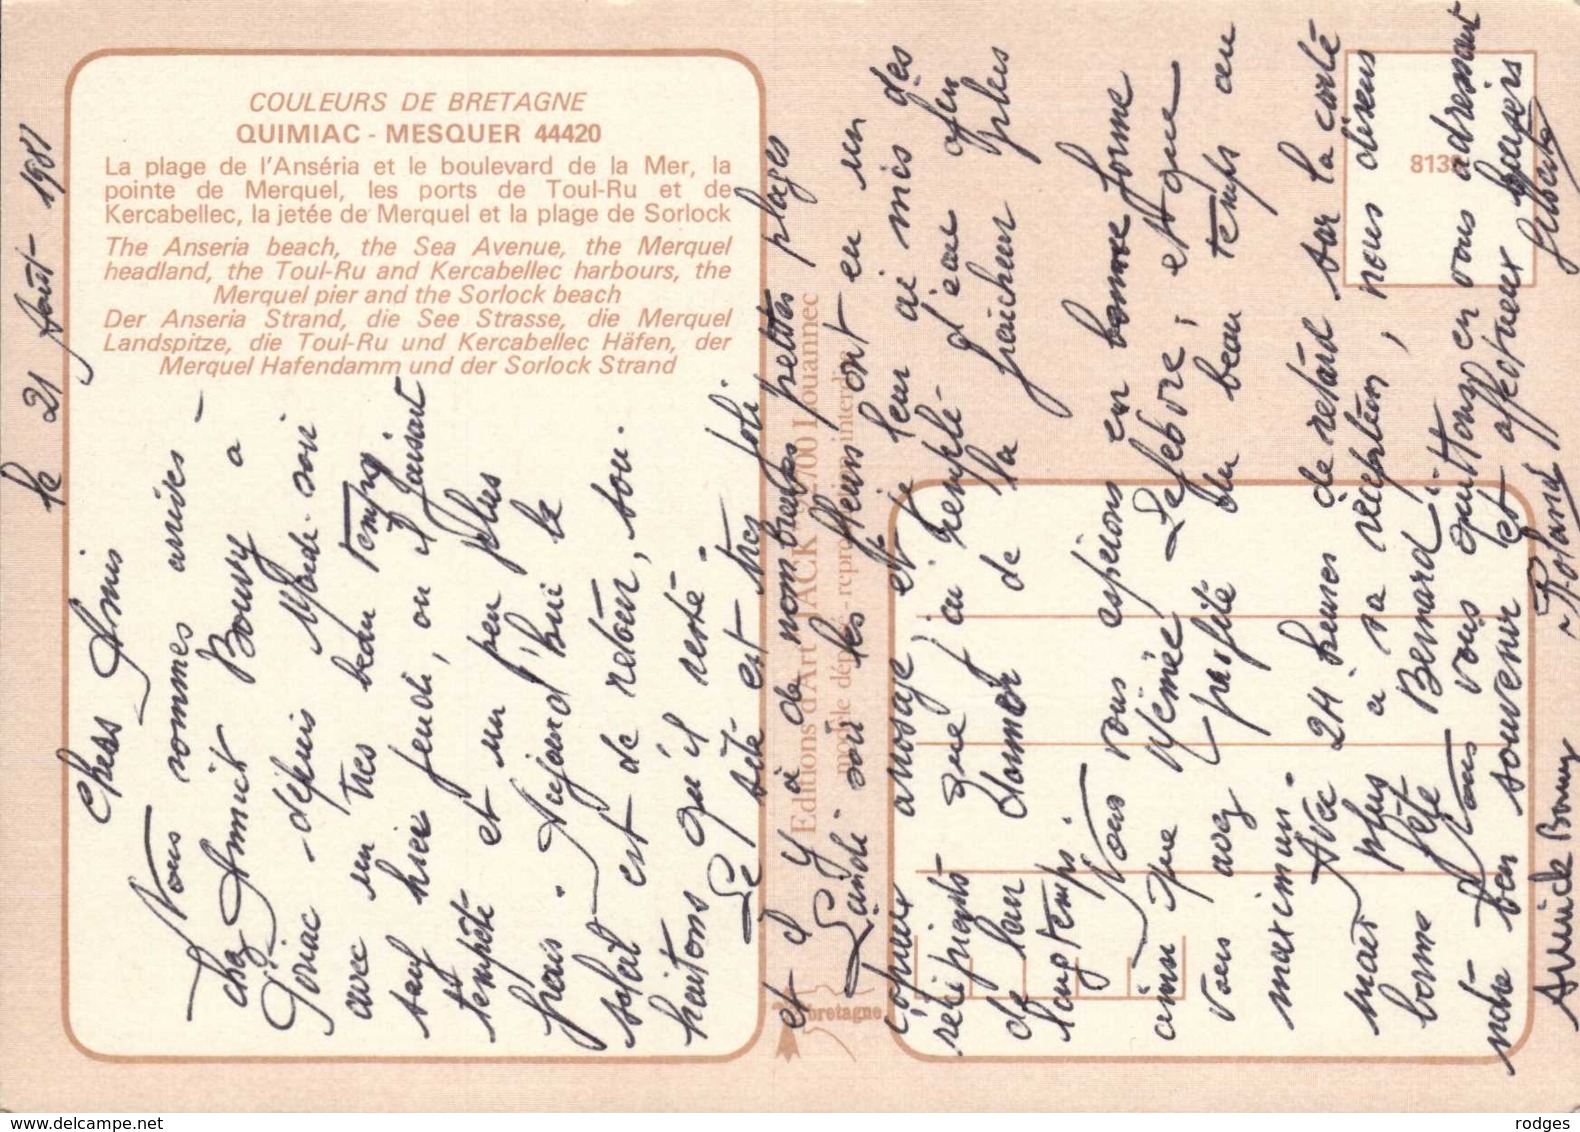 COULEURS DE BRETAGNE
QUIMIAC - MESQUER 44420
La plage de l'Anséria et le boulevard de la Mer, la
pointe de Merquel, les ports de Toul-Ru et de
Kercabellec, la jetée de Merquel et la plage de Sorlock
The Anseria beach, the Sea Avenue, the Merquel
headland, the Toul-Ru and Kercabellec harbours, the
Merquel pier and the Sorlock beach
Der Anseria Strand, die See Strasse, die Merquel
Landspitze, die Toul-Ru und Kercabellec Häfen, der
Merquel Hafendamm und der Sorlock Strand
le 21 Août 1981
Chers Amis
Nous sommes arrivés
chez Annick Bouvry a
Piriac - depuis Mardi soir
avec un très beau temps
sauf hier jeudi, ou il faisait
tempête et un peu plus
frais. Aujourd'hui le
soleil est de retour, sou-
haitons qu'il reste.
Le site est très joli
et il y a de nombreuses petites plages
Lundi soir les fleurs ont eu un
copieux arrosage et je leur ai mis des
récipients que j'ai remplis d'eau afin
de leur donner de la fraicheur plus
longtemps.
Nous vous espérons en bonne forme
ainsi que Mémée Lefebvre, et que
vous avez profité du beau temps au
maximum.
Avec 24 heures de retard sur la carte
mais plus a sa réception, nous disons
bonne fête Bernard!
Nous vous quittons en vous adressant
notre bon souvenir et affectueux baisers
Annick Bouvry ~ Roland
Editions d'Art JACK Louannec
modèle déposé - reproduction interdite
bretagne
www.delcampe.net
rodges